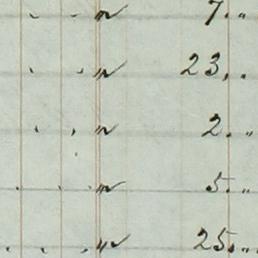 " 7. "
" 23, "
" 2. "
" 5. "
" 25. "